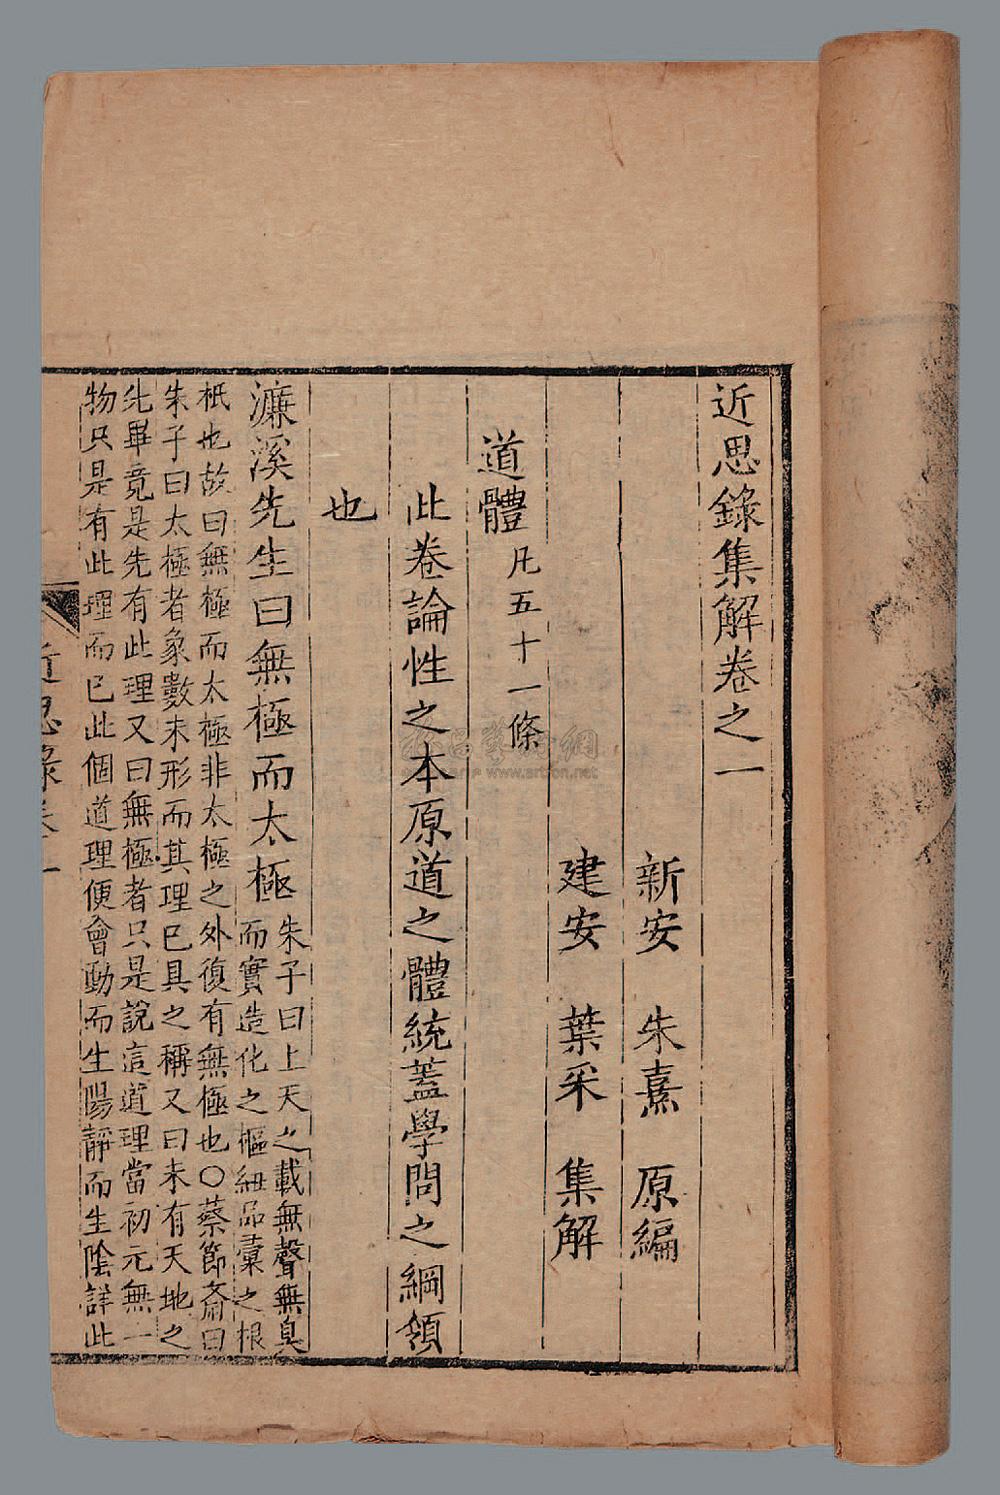 近思錄集解卷之一
新安 朱熹 原編
建安 葉采 集解
道體 凡五十一條
此卷論性之本原道之體統蓋學問之綱領
也
濂溪先生曰無極而太極
朱子曰上天之載無聲無臭
而實造化之樞紐品彙之根
柢也故曰無極而太極非太極之外復有無極也○蔡節齋曰
朱子曰太極者象數未形而其理已具之稱又曰未有天地之
先畢竟是先有此理又曰無極者只是說這道理當初元無一
物只是有此理而已此個道理便會動而生陽靜而生陰詳此
近思錄卷一
www.artron.net